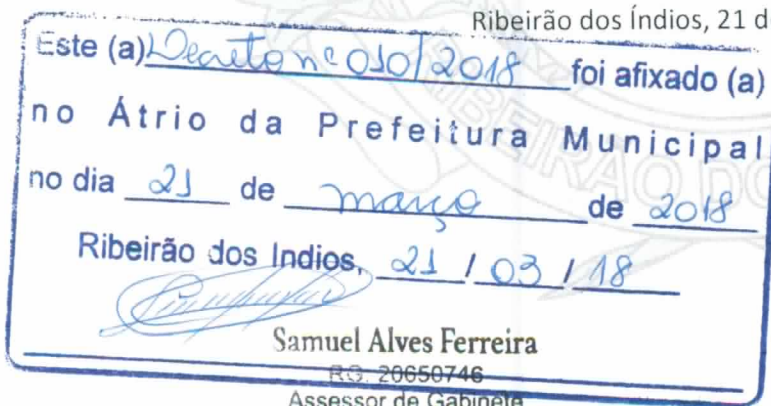 Ribeirão dos Índios, 21 d
Este (a) Decreto nº 010/2018 foi afixado (a)
no Átrio da Prefeitura Municipal
no dia 21 de março de 2018
Ribeirão dos Indios, 21 / 03 / 18
Samuel Alves Ferreira
RG. 20650746
Assessor de Gabinete
RIBEIRÃO DO